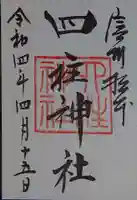 信州松本
四柱神社
令和四年四月十五日